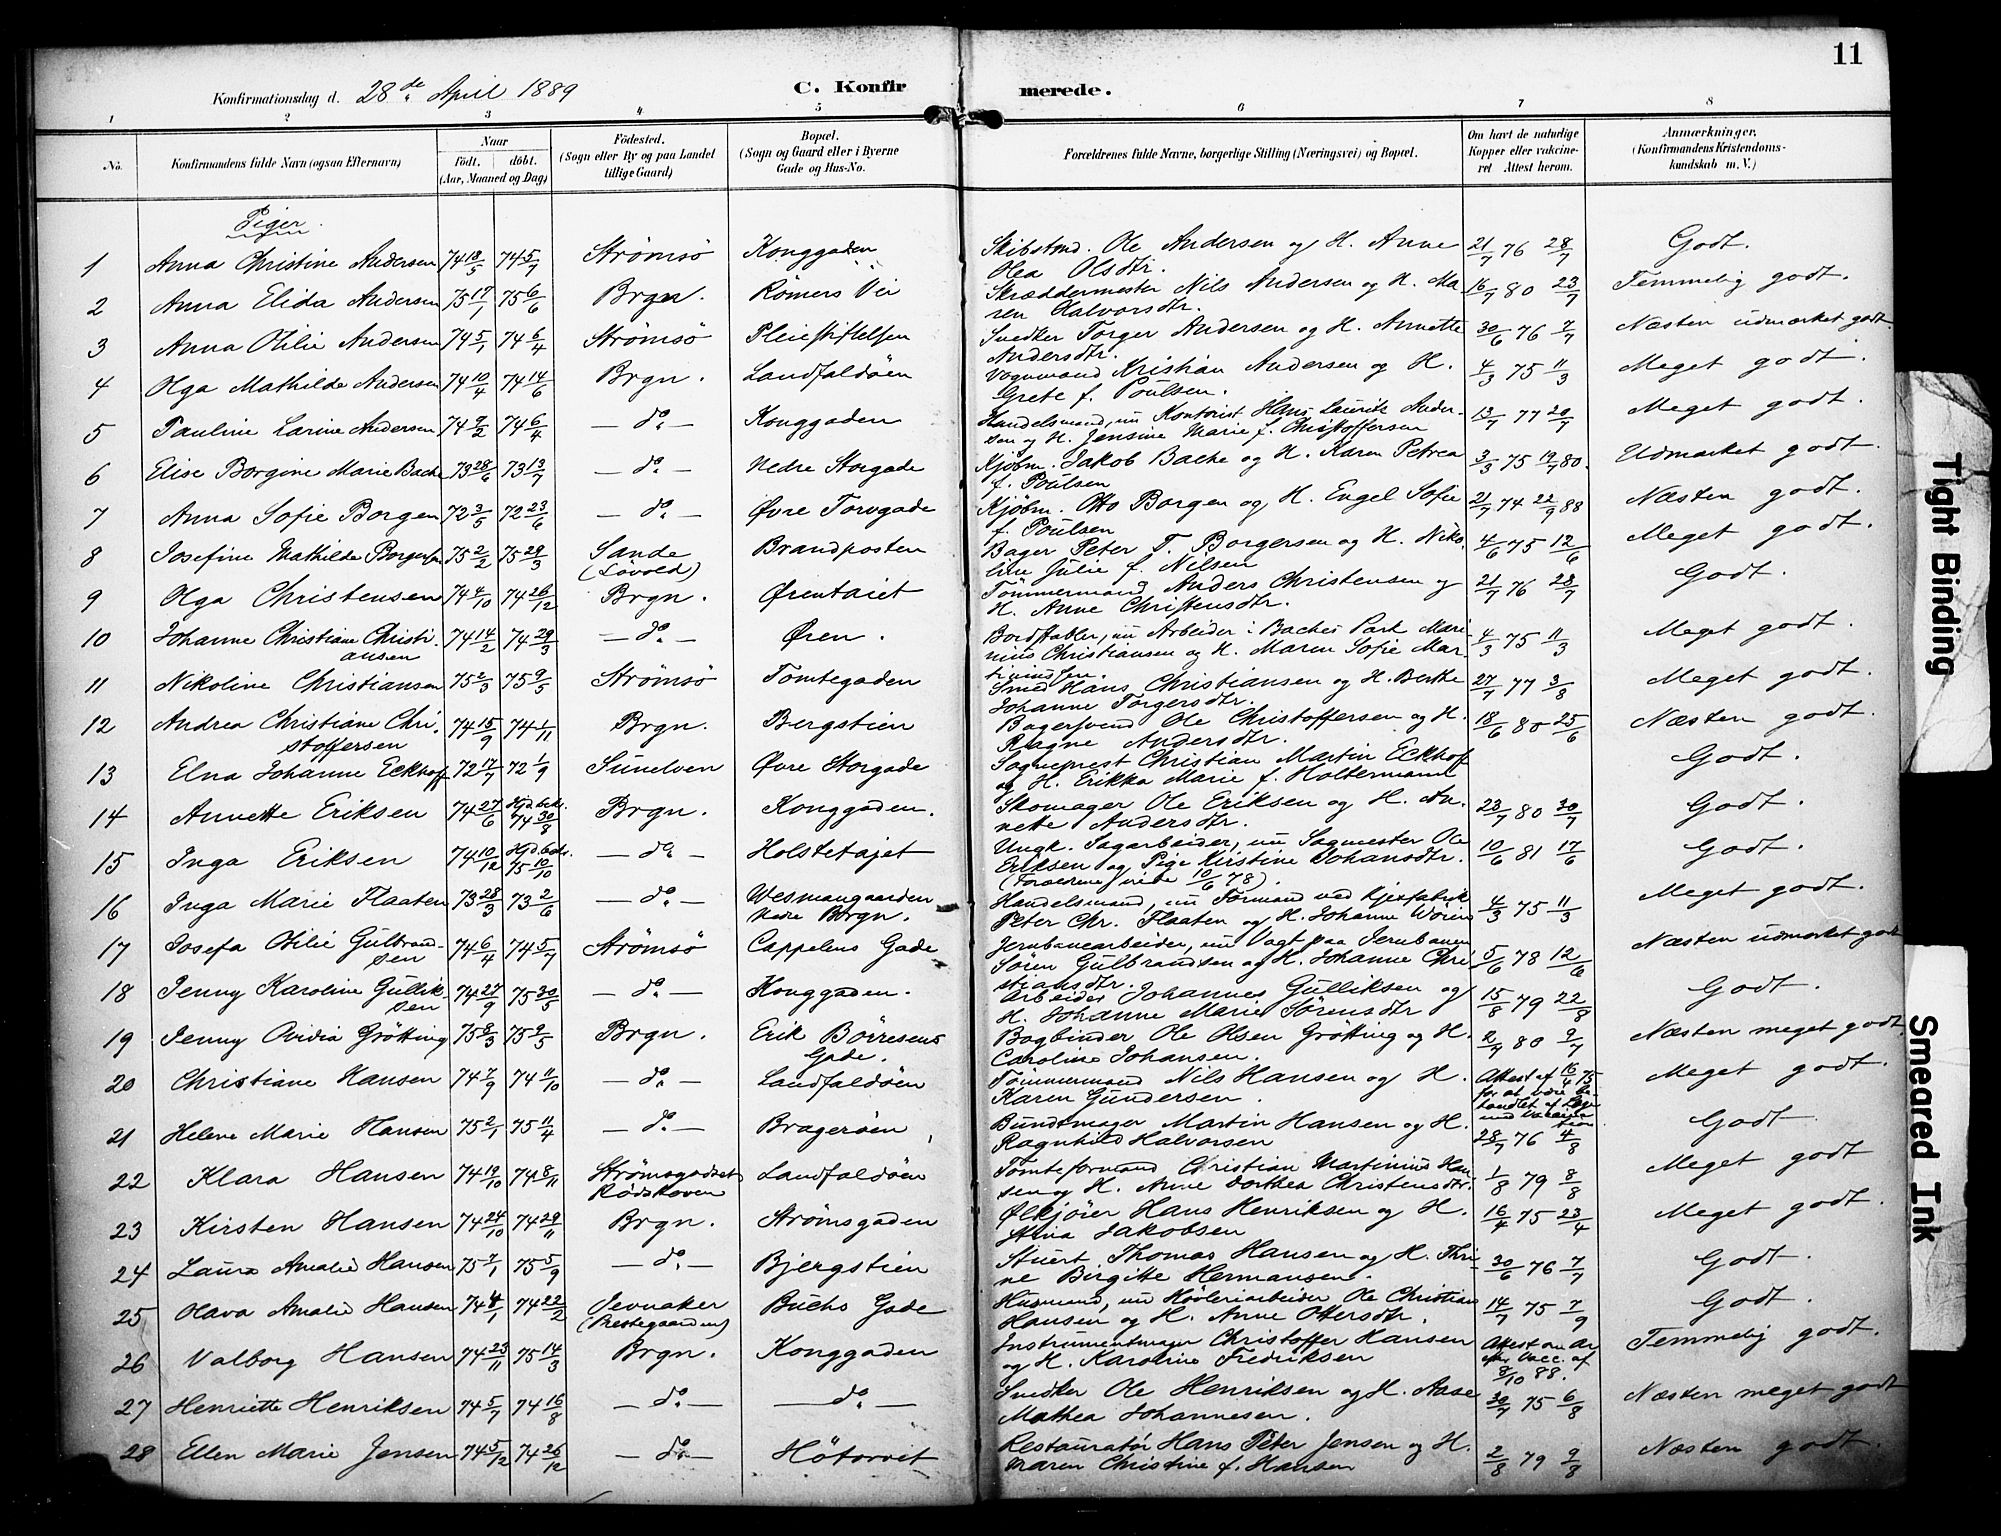 11
Konfirmationsdag d. 28de April 1889
C. Konfirmerede.
1 2 3 4 5 6 7 8
No. Konfirmandens fulde Navn (ogsaa Efternavn) Naar Födt. döbt. (Aar, Maaned og Dag) Födested. (Sogn eller By og paa Landet tillige Gaard) Bopæl. (Sogn og Gaard eller i Byerne Gade og Hus-No. Forældrenes fulde Navne, borgerlige Stilling (Næringsvei) og Bopæl. Om havt de naturlige Kopper eller vaccineret Attest herom. Anmærkninger. (Konfirmandens Kristendomskundskab m. V.)
Piger.
1 Anna Christine Andersen 74 18/5 74 5/7 Strømsö Konggaden Skibstmd. Ole Andersen og H. Anne Olea Olsdtr. 21/7 76 28/7 Godt.
2 Anna Elida Andersen 75 17/1 75 6/6 Brgn. Römers Vei Skræddermester Nils Andersen og H. Maren Halvorsdtr. 16/7 80 23/7 Temmelig godt.
3 Anna Otilie Andersen 74 5/1 74 6/4 Strömsö Pleiestiftelsen Snedker Torger Andersen og H. Annette Andersdtr. 30/6 76 7/7 Næsten udmærket godt.
4 Olga Mathilde Andersen 74 10/4 74 14/6 Brgn. Landfaldöen Vognmand Kristian Andersen og H. Grete f. Poulsen. 4/3 75 11/3 Meget godt.
5 Pauline Larine Andersen 74 9/2 74 6/4 – do. – Konggaden Handelsmand, nu Kontorist Hans Lauritz Andersen og H. Jensine Marie f. Christoffersen 13/7 77 20/7 Meget godt.
6 Elise Borgine Marie Bache 73 28/6 73 13/7 – do. – Nedre Storgade Kjøbm. Jakob Bache og H. Karen Petrea f. Poulsen 3/3 75 19/7 80. Udmærket godt.
7 Anna Sofie Borgen 72 3/5 72 23/6 – do. – Øvre Torvgade Kjöbm. Otto Borgen og H. Engel Sofie f. Poulsen 21/7 74 22/9 88 Næsten godt.
8 Josefine Mathilde Borgersen 75 2/2 75 29/3 Sande (Lövold) Brandposten Bager Peter T. Borgersen og H. Nikoline Julie f. Nilsen 4/6 75 12/6 Meget godt.
9 Olga Christensen 74 4/10 74 26/12 Brgn. Ørentaiet Tömmermand Anders Christensen og H. Anne Christensdtr. 21/7 76 28/7 Godt.
10 Johanne Christiane Christiansen 74 14/2 74 29/3 – do. – Øren. Bordstabler, nu Arbeider i Baches Park Marinius Christiansen og H. Maren Sofie Martinussen. 4/3 75 11/3 Meget godt.
11 Nikoline Christiansen 75 2/3 75 9/5 Strömsö Tomtegaden Smed Hans Christiansen og H. Berthe Johanne Torgersdtr. 27/7 77 3/8 Meget godt.
12 Andrea Christiane Christoffersen 74 15/9 74 1/11 Brgn. Bergstien Bagersvend Ole Christoffersen og H. Ragne Andersdtr. 18/6 80 25/6 Næsten godt.
13 Elna Johanne Eckhoff 72 17/7 72 1/9 Sunelven Øvre Storgade Sogneprest Christian Martin Eckhoff og H. Erikka Marie f. Holtermann Godt.
14 Annette Eriksen 74 27/6 Hjd. bek. 74 30/8 Brgn. Konggaden. Skomager Ole Eriksen og H. Annette Andersdtr. 23/7 80 30/7 Godt.
15 Inga Eriksen 74 10/12 Hjd. bek. 75 10/10 – do. – Holstetajet Ungk. Sagarbeider, nu Sagmester Ole Eriksen og Pige Kirstine Johansdtr. (Forældrene viede 10/6 78). 10/6 81 17/6 Godt.
16 Inga Marie Flaaten 73 28/3 73 2/6 – do. – Wesmangaarden Nedre Brgn. Handelsmand, nu Formand ved Kjexfabrik Peter Chr. Flaaten og H. Johanne 4/3 75 11/3 Meget godt.
17 Josefa Otilie Gulbrandsen 74 6/4 74 5/7 Strömsö Cappelens Gade Jernbanearbeider, nu Vagt paa Jernbanen Sören Gulbrandsen og H. Johanne Christiansdtr. 5/6 78 12/6 Næsten udmærket godt
18 Jenny Karoline Gulliksen 74 27/9 75 30/5 – do. – Konggaden. Arbeider Johannes Gulliksen og H. Johanne Marie Sörensdtr 15/8 79 22/8 Godt.
19 Jenny Ovidia Grötting 75 8/3 75 9/5 Brgn. Erik Börresens Gade. Bogbinder Ole Olsen Grötting og H. Caroline Johansen. 2/7 80 9/7 Næsten meget godt
20 Christiane Hansen 74 7/9 74 11/10 – do. – Landfaldöen Tömmermand Nils Hansen og H. Karen Gundersen. Attest af 16/4 75 for at være behandlet af Læge med Vaccination Meget godt.
21 Helene Marie Hansen 75 2/1 75 11/4 – do. – Brageröen, Bundtmager Martin Hansen og H. Ragnhild Halvorsen 28/7 76 4/8 Godt.
22 Klara Hansen 74 19/10 74 8/11 Strömsgodset Rödskoven Landfaldöen Tomteformand Christian Martinius Hansen og H. Anne Dorthea Christensdtr. 1/8 79 8/8 Meget godt
23 Kirsten Hansen 74 24/10 74 29/11 Brgn. Strömsgaden Ølkjörer Hans Henriksen og H. Jakobsen 16/4 75 23/4 Meget godt.
24 Laura Amalie Hansen 75 7/1 75 5/9 – do. – Bjergstien Stuert Thomas Hansen og H. Thrine Birgitte Hermansen. 30/6 76 7/7 Godt.
25 Olava Amalie Hansen 74 4/1 74 22/2 Jevnaker (Prestegaarden) Buchs Gade Husmand, nu Hövleriarbeider Ole Christian Hansen og H. Anne Ottersdtr. 14/7 75 7/9 Godt.
26 Valborg Hansen 74 23/11 75 14/3 Brgn. Konggaden Instrumentmager Christoffer Hansen og H. Karoline Fredriksen Attest om Ar efter Vacc. af 8/10 88. Temmelig godt.
27 Henriette Henriksen 74 5/7 74 16/8 – do. – – do. – Snedker Ole Henriksen og H. Aase Mathea Johannesen. 30/7 75 6/8 Næsten meget godt
28 Ellen Marie Jensen 74 5/12 74 26/12 – do. – Hötorvet Restauratör Hans Peter Jensen og H. Maren Christine f. Hansen 2/8 79 9/8 Næsten godt.
Tight Binding
Smeared Ink